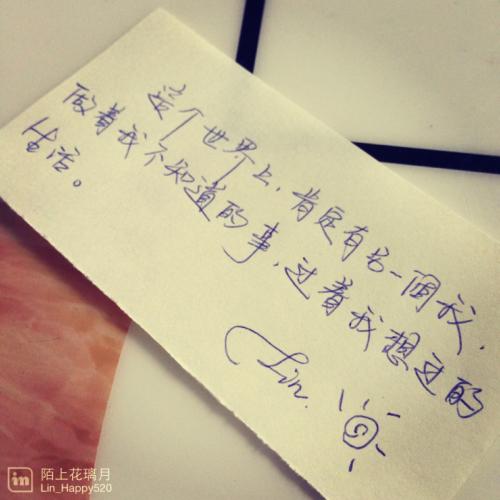 这个世界上，肯定有另一個我，
做着我不知道的事，过着我想过的
生活。
Lin.
in
陌上花璃月
Lin_Happy520